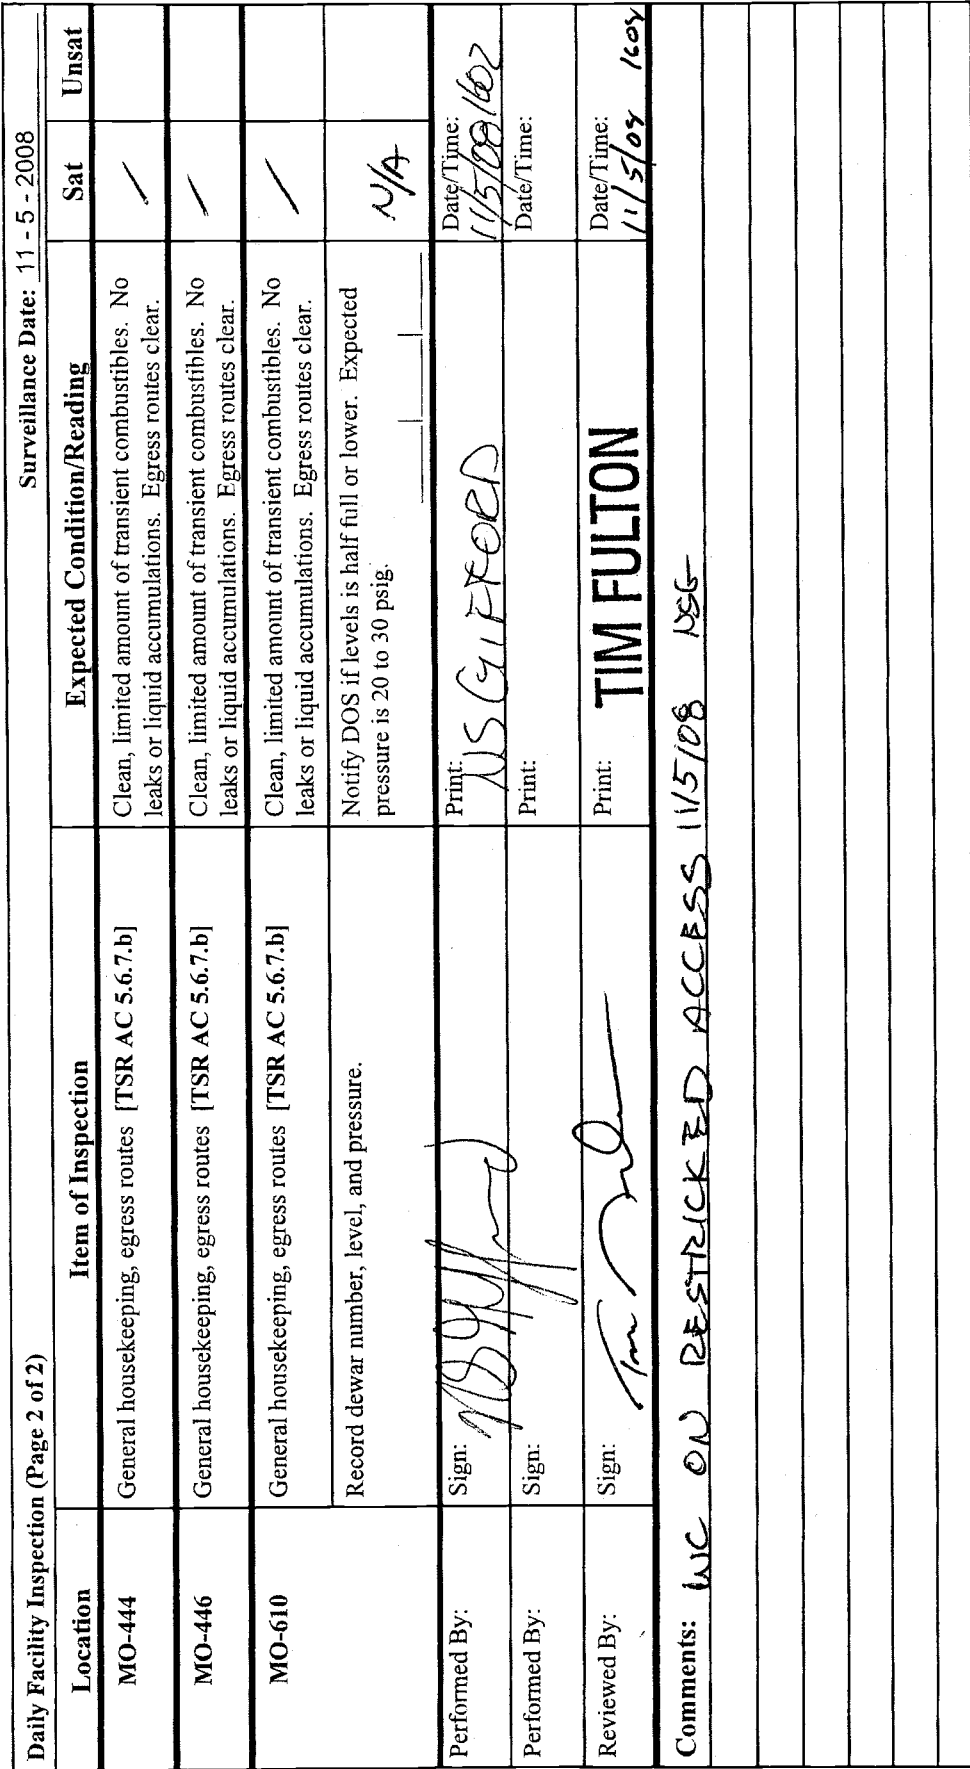 Daily Facility Inspection (Page 2 of 2) Surveillance Date: 11 - 5 - 2008
Location Item of Inspection Expected Condition/Reading Sat Unsat
MO-444 General housekeeping, egress routes [TSR AC 5.6.7.b] Clean, limited amount of transient combustibles. No /
leaks or liquid accumulations. Egress routes clear.
MO-446 General housekeeping, egress routes [TSR AC 5.6.7.b] Clean, limited amount of transient combustibles. No /
leaks or liquid accumulations. Egress routes clear.
MO-610 General housekeeping, egress routes [TSR AC 5.6.7.b] Clean, limited amount of transient combustibles. No /
leaks or liquid accumulations. Egress routes clear.
Record dewar number, level, and pressure. Notify DOS if levels is half full or lower. Expected N/A
pressure is 20 to 30 psig.
Performed By: Sign: Print: NS GIFFORD Date/Time: 11/5/08 1602
Performed By: Sign: Print: Date/Time:
Reviewed By: Sign: Print: TIM FULTON Date/Time: 11/5/08 1608
Comments: WC ON RESTRICKED ACCESS 11/5/08 NSG